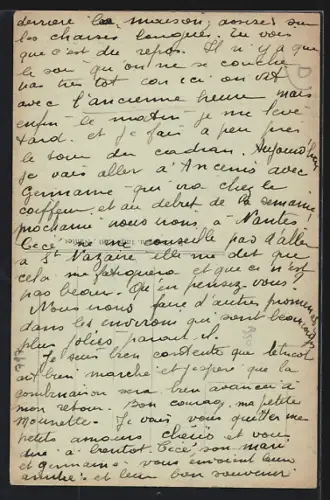 derrière la maison, assises sur
les chaises longues. Tu vois
que c'est du repos. Il n'y a que
le soir qu'on ne se couche
pas très tôt car ici on vit
avec l'ancienne heure mais
enfin le matin je me lève
tard et je fais à peu près
le tour du cadran. Aujourd'hui
je vais aller à Ancenis avec
Germaine qui ira chez le
coiffeur et au début de la semaine
prochaine nous irons à Nantes
Cécé ne me conseille pas d'aller
à St Nazaire elle me dit que
cela me fatiguera et que ce n'est
pas beau. Qu'en pensez vous?
Nous nous faire d'autres promenades
dans les environs qui sont beaucoup
plus jolis paraît-il.
Je suis bien contente que le tricot
ait bien marché et j'espère que la
combinaison sera bien avancée à
mon retour. Bon courage ma petite
Mounette. Je vais vous quitter mes
petits amours chéris et vous
dire à bientôt. Cécé, son mari
et Germaine vous envoient leurs
amitiés et leur bon souvenir.